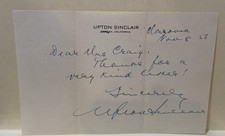 UPTON SINCLAIR
CALIFORNIA
Nov 8
Dear Mrs Craig,
Thanks for a
very kind letter!
Sincerely
Upton Sinclair